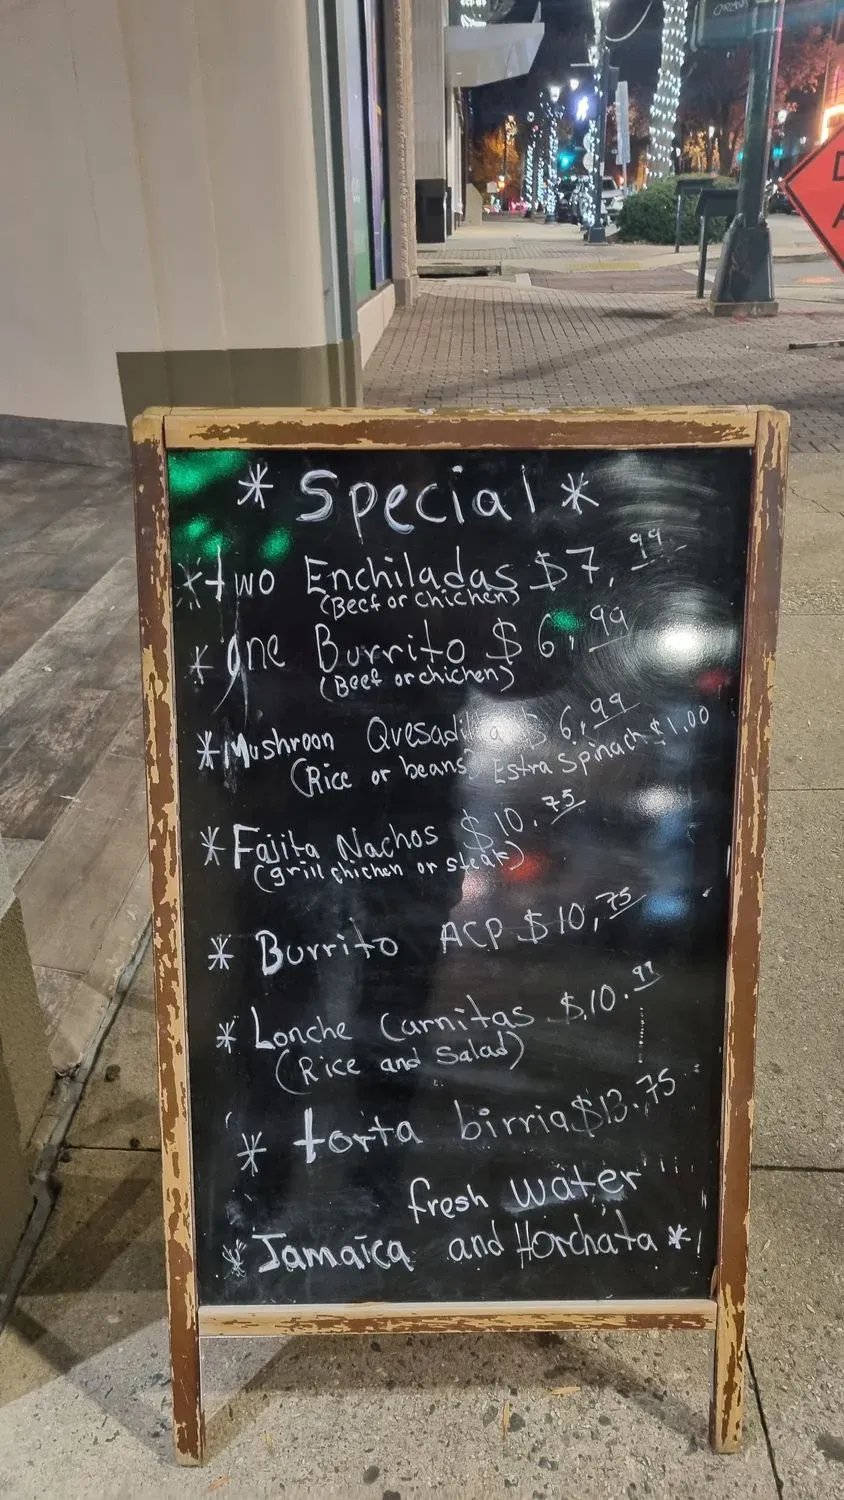 * Special *
*two Enchiladas $7.99
(Beef or chicken)
* One Burrito $6.99
(Beef or chicken)
*Mushroon Quesadilla $6.99
(Rice or beans) Estra Spinach $1.00
* Fajita Nachos $10.75
(grill chichen or steak)
* Burrito ACP $10,75
* Lonche Carnitas $10.99
(Rice and Salad)
* torta birria $13.75
fresh water
* Jamaica and Horchata *